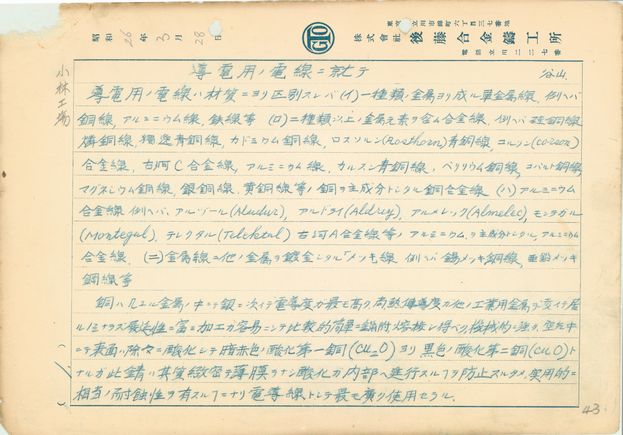 東京都立川市錦町六丁目三七番地
株式會社 後藤合金鑄工所
電話立川二二二七番
GTO
昭和26年3月28日
小林工場
導電用ノ電線ニ就テ
谷山
導電用ノ電線ハ材質ニヨリ区別スレバ(イ)一種類ノ金属ヨリ成ル單金属線、例ヘバ
銅線、アルミニウム線、鉄線等 (ロ)二種類以上ノ金属元素ヲ含ム合金線、例ヘバ硅銅線
燐銅線、獨逸青銅線、カドミウム銅線、ロスソルン(Rosthorn)青銅線、コルソン(corson)
合金線、古河C合金線、アルミニウム線、カルスン青銅線、ベリリウム銅線、コバルト銅線
マグネシウム銅線、銀銅線、黄銅線等ノ銅ヲ主成分トシタル銅合金線 (ハ)アルミニウム
合金線 例ヘバ、アルヅール(Aludur)、アルドライ(Aldrey)、アルメレック(Almelec)、モンテガル
(Montegal)、テレクタル(Telektal) 古河A合金線等ノアルミニウムヲ主成分トシタル、アルミニウム
合金線、(ニ)金属線ニ他ノ金属ヲ鍍金シタルメッキ線 例ヘバ錫メッキ銅線、亜鉛メッキ
鋼線等
銅ハ凡ユル金属ノ中ニテ銀ニ次イデ電導度ガ最モ高ク、尚熱傳導度ガ他ノ工業用金属ニ
ルノミナラズ展延性ニ富ミ加工ガ容易ニシテ比較的簡單ニ鑞附熔接シ得ベク機械的ニ強ク、空気中
ニテ表面ハ除々ニ酸化シテ暗赤色ノ酸化第一銅(Cu2O)ヨリ黒色ノ酸化第二銅(CuO)ト
ナルガ此錆ハ其質緻密デ薄膜ヲナシ酸化ガ内部ヘ進行スルヿヲ防止スルタメ、実用的ニ
相当ノ耐蝕性ヲ有スルヿニナリ電導線トシテ最モ廣ク使用セラル。
43